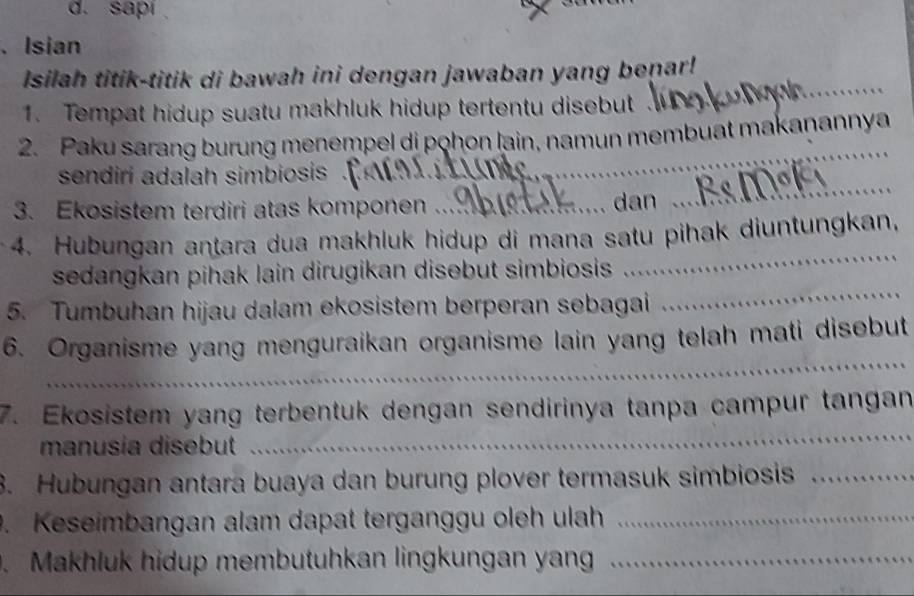 d. sapi
. Isian
Isilah titik-titik di bawah ini dengan jawaban yang benar!
1. Tempat hidup suatu makhluk hidup tertentu disebut lingkungan
2. Paku sarang burung menempel di pohon lain, namun membuat makanannya
sendiri adalah simbiosis
3. Ekosistem terdiri atas komponen ........ dan ........
4. Hubungan antara dua makhluk hidup di mana satu pihak diuntungkan,
sedangkan pihak lain dirugikan disebut simbiosis ........
5. Tumbuhan hijau dalam ekosistem berperan sebagai ........
6. Organisme yang menguraikan organisme lain yang telah mati disebut
........
7. Ekosistem yang terbentuk dengan sendirinya tanpa campur tangan
manusia disebut ........
8. Hubungan antara buaya dan burung plover termasuk simbiosis ........
. Keseimbangan alam dapat terganggu oleh ulah ........
. Makhluk hidup membutuhkan lingkungan yang ........